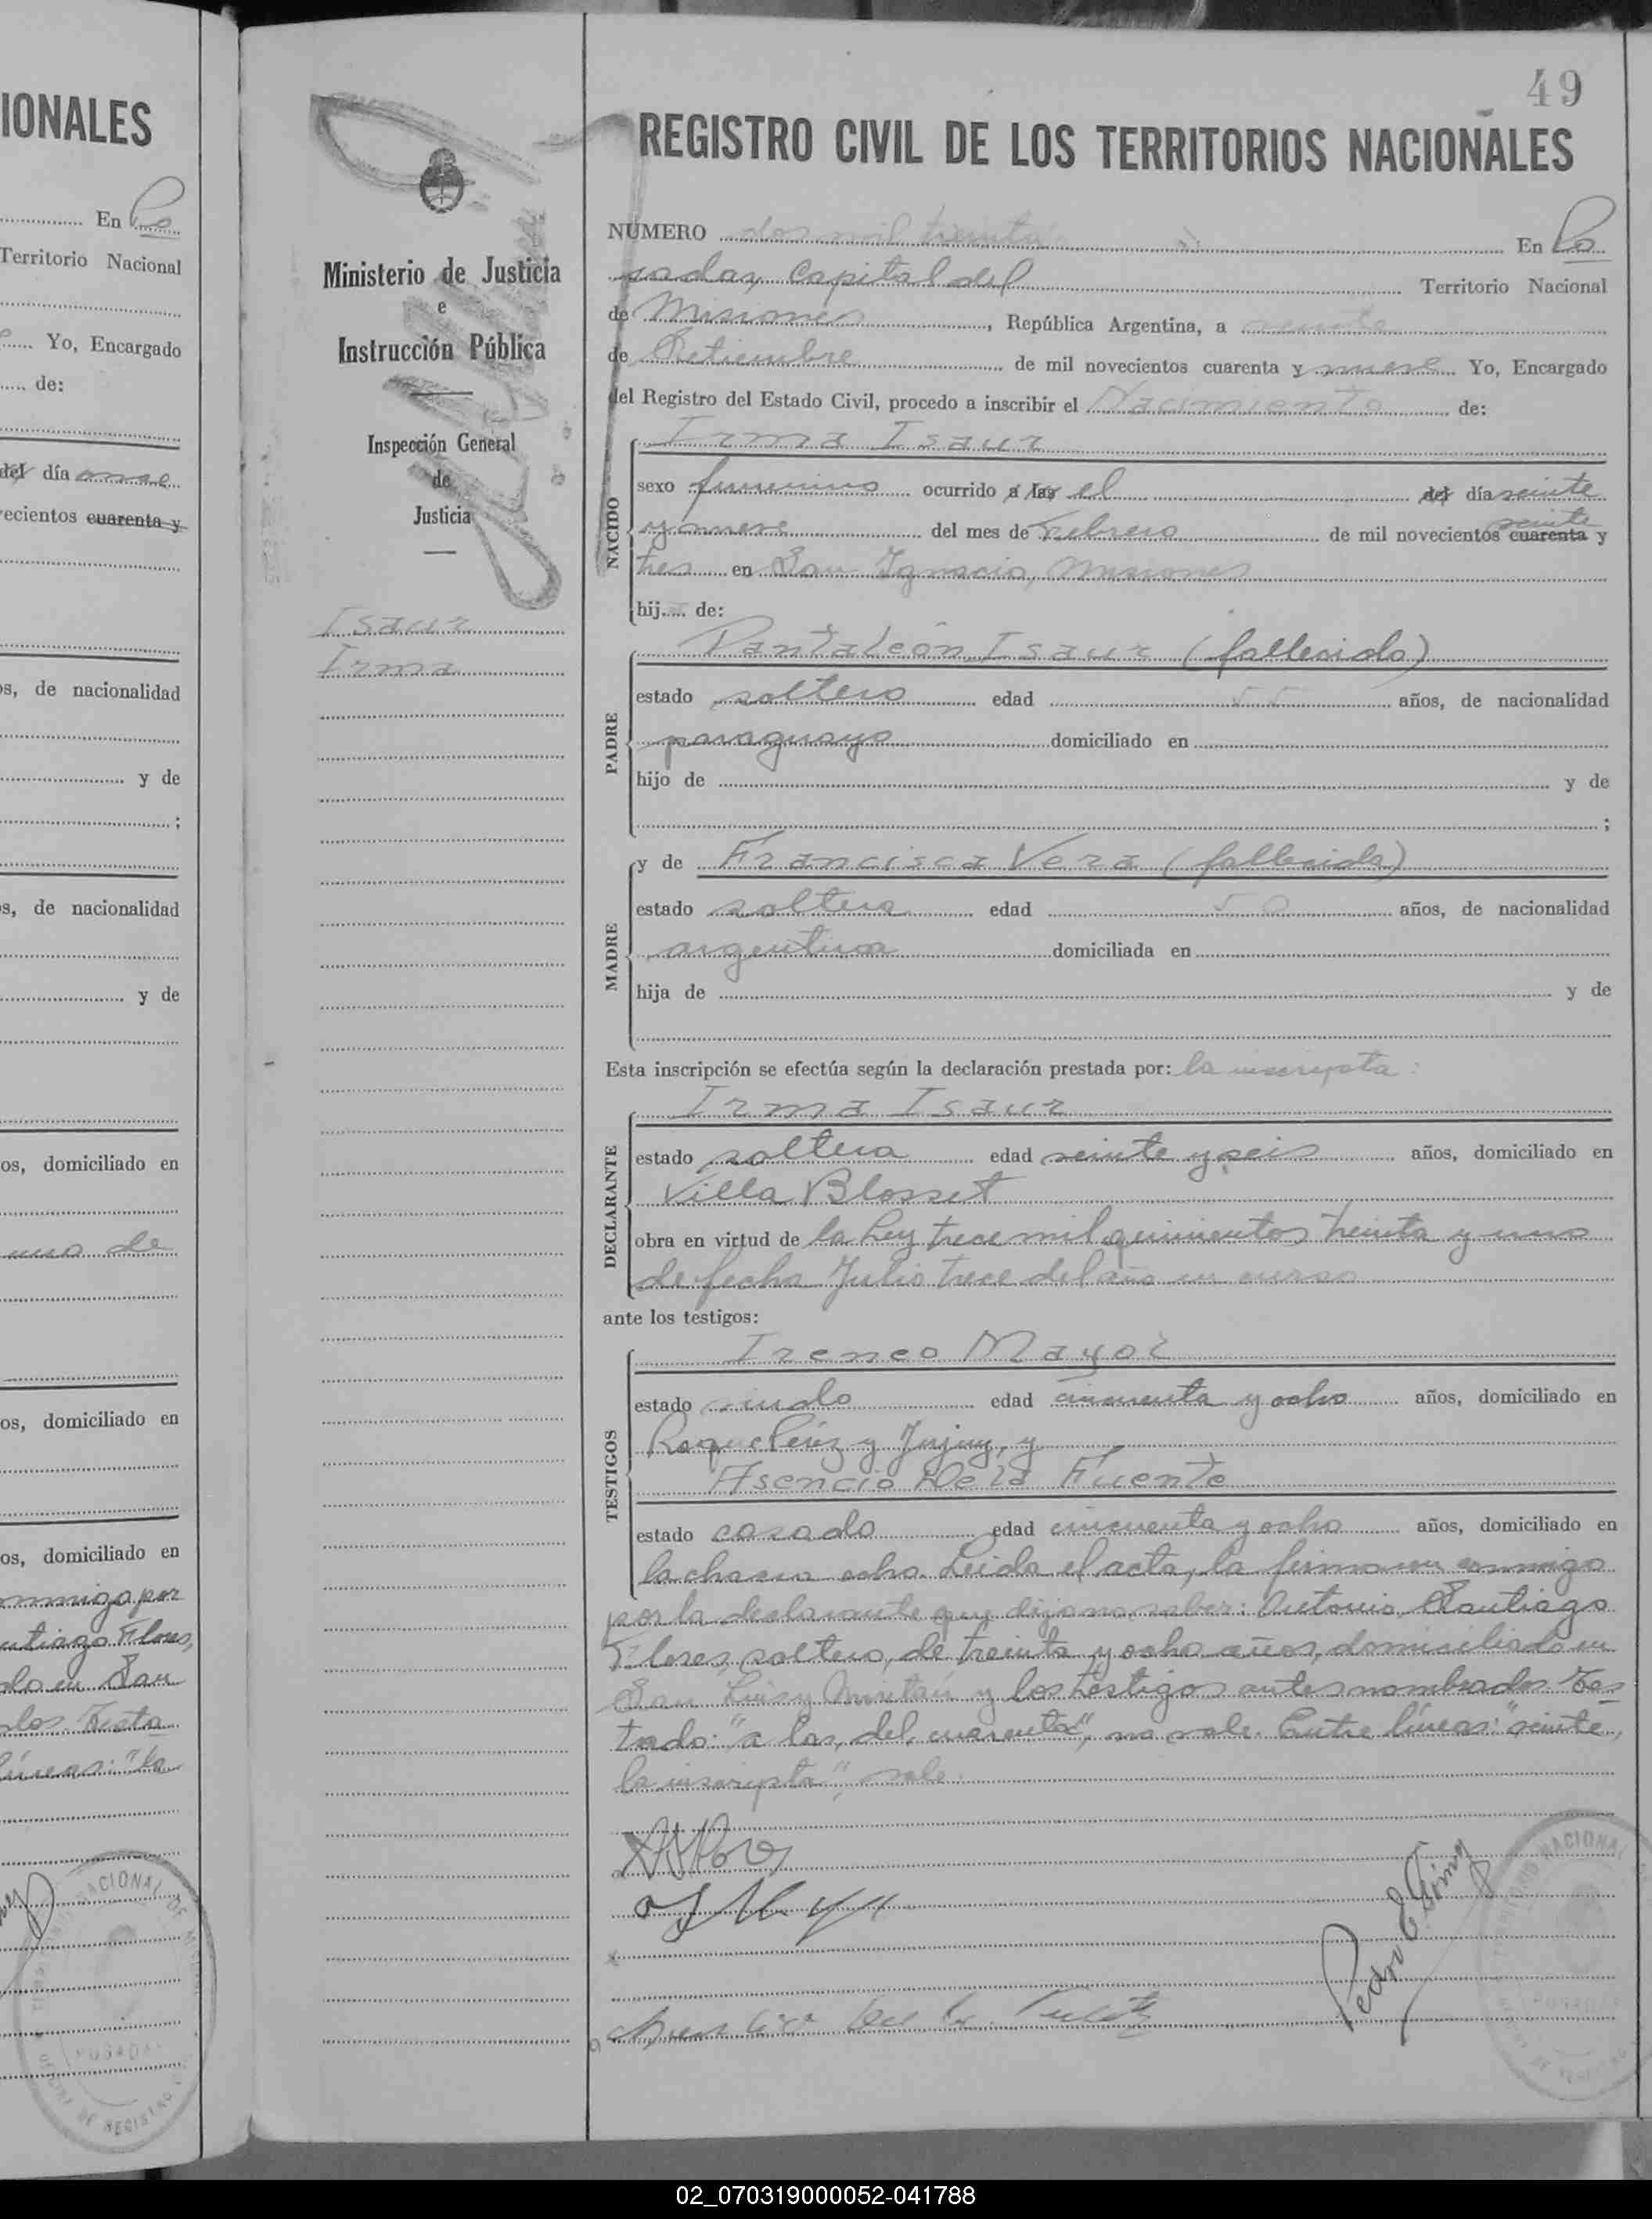 IONALES
En Po
Territorio Nacional
Yo, Encargado
de:
del día once
ecientos cuarenta y
s, de nacionalidad
y de
;
s, de nacionalidad
y de
os, domiciliado en
uno de
os, domiciliado en
os, domiciliado en
onmigo por
ntiago Flores,
do en San
los. Testa
líneas: "la
Ministerio de Justicia
e
Instrucción Pública
Inspección General
de
Justicia
Isaur
Irma
49
REGISTRO CIVIL DE LOS TERRITORIOS NACIONALES
NÚMERO dos mil treinta En Po
sadas, Capital del Territorio Nacional
de Misiones, República Argentina, a veinte
de Setiembre de mil novecientos cuarenta y nueve Yo, Encargado
del Registro del Estado Civil, procedo a inscribir el Nacimiento de:
NACIDO
Irma Isaur
sexo femenino ocurrido a las el del día veinte
y nueve del mes de Febrero de mil novecientos cuarenta veinte y
tres en San Ignacio, Misiones
hija de:
PADRE
Pantaleón Isaur (fallecido)
estado soltero edad 55 años, de nacionalidad
paraguaya domiciliado en
hijo de y de
;
MADRE
y de Francisca Vera (fallecida)
estado soltera edad 50 años, de nacionalidad
argentina domiciliada en
hija de y de
Esta inscripción se efectúa según la declaración prestada por: la inscripta:
DECLARANTE
Irma Isaur
estado soltera edad veinte y seis años, domiciliado en
Villa Blosset
obra en virtud de la Ley trece mil quinientos treinta y uno
de fecha Julio trece del año en curso
ante los testigos:
TESTIGOS
Ireneo Mayol
estado viudo edad cincuenta y ocho años, domiciliado en
Roque Pérez y Jujuy, y
Asencio De la Fuente
estado casado edad cincuenta y ocho años, domiciliado en
la chacra ocho. Leída el acta, la firma con conmigo
por la declarante que dijo no saber: Antonio Santiago
Flores, soltero, de treinta y ocho años, domiciliado en
San Luis y Miritán y los testigos antes nombrados. Tes
tado: "a las, del, cuarenta", no vale. Entre líneas: "veinte,
la inscripta", vale.
Pedro E.
02_070319000052-041788